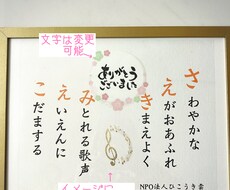 文字は変更
可能
ありがとう
ございました
さわやかな
えがおあふれ
きまえよく
みとれる歌声
えいえんに
こだまする
NPO法人ひこうき雲